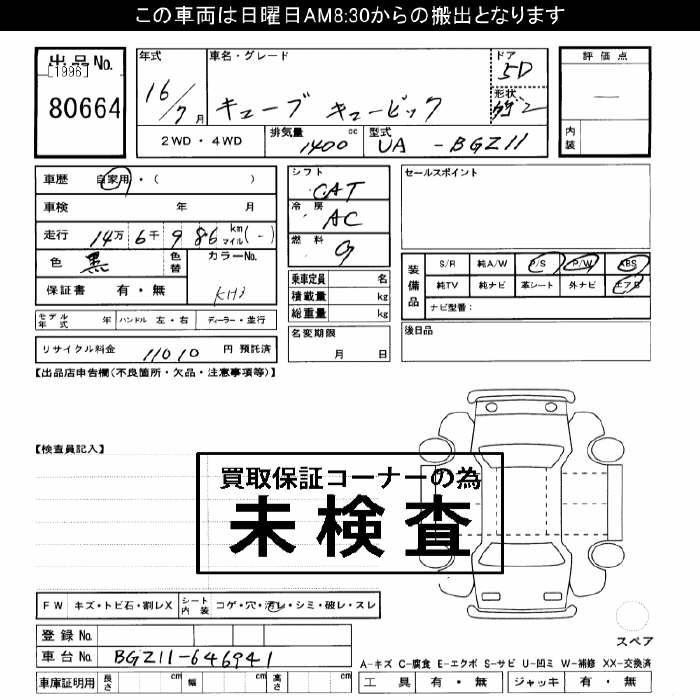 この車両は日曜日AM8:30からの搬出となります
出品No.
[1996]
80664
年式
16/7月
車名・グレード
キューブ キュービック
ドア
5D
形状
評価点
―
内装
2WD・4WD
排気量
1400cc
型式
UA-BGZ11
車歴 自家用・( )
車検 年 月
走行 14万6千986 km マイル(-)
色 黒
色替
カラーNo.
KH3
保証書 有・無
シフト
CAT
冷房
AC
燃料
G
乗車定員 名
積載量 kg
総重量 kg
名変期限
月 日
セールスポイント
装備品
S/R 純A/W P/S P/W ABS
純TV 純ナビ 革シート 外ナビ エアB
ナビ型番：
後日品
モデル年式 年 ハンドル 左・右 ディーラー・並行
リサイクル料金 11010円 預託済
【出品店申告欄(不良箇所・欠品・注意事項等)】
【検査員記入】
買取保証コーナーの為
未検査
FW キズ・トビ石・割レX
シート内装 コゲ・穴・汚レ・シミ・破レ・スレ
登録No.
車台No. BGZ11-646941
車庫証明用 長さ cm 幅 cm 高さ cm
スペア
A-キズ C-腐食 E-エクボ S-サビ U-凹ミ W-補修 XX-交換済
工具 有・無 ジャッキ 有・無